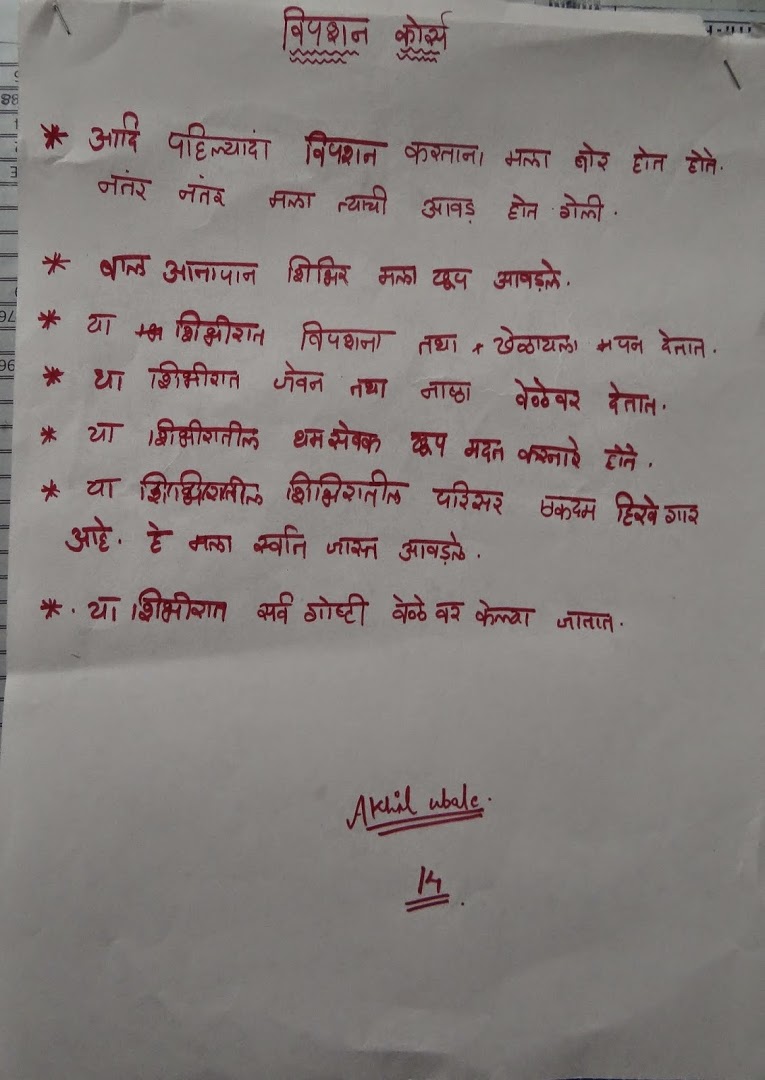 विपशन कोर्स
* आदि पहिल्यादां विपशन करताना मला बोर होत होते.
नंतर नंतर मला त्याची आवड़ होत गेली.
* बाल आनापान शिबिर मला खूप आवड़ले.
* या शिबीरात विपशना तथा खेळायला पन देतात.
* या शिबीरात जेवन तथा नाळा वेळेवर देतात.
* या शिबीरातील धमसेवक खूप मदत करनारे होते.
* या शिबिरातील परिसर एकदम हिरवे गार
आहे. हे मला र्स्वात जास्त आवड़ले.
* . या शिबीरात सर्व गोष्टी वेळे वर केल्या जातात.
Akhil ubale.
14.